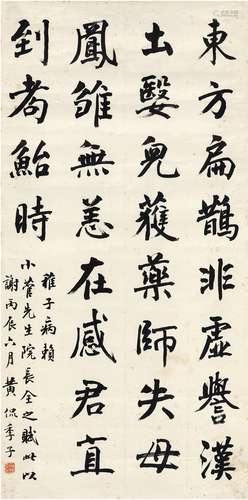 東方扁鵲非虛譽漢
土嫛兒獲藥師失母
鳳雛無恙在感君直
到耇鮐時
稚子病賴
小菅先生院長全之賦此以
謝丙辰六月黃侃季子